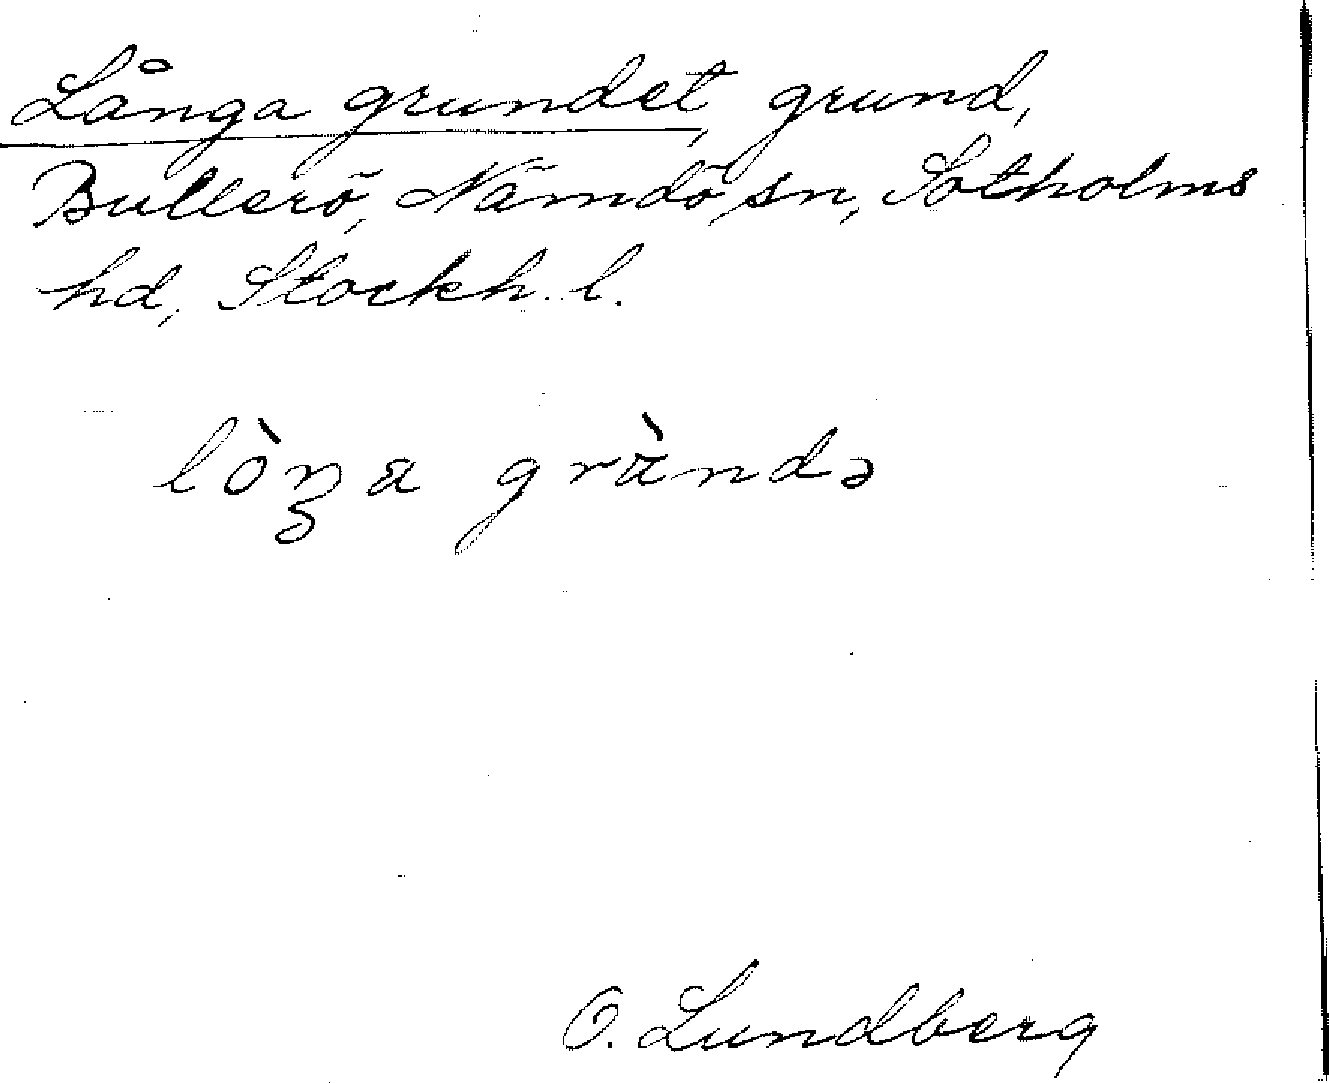 Långa grundet, grund,
Bullerö, Nämdö sn, Sotholms
hd, Stockh. l.
lòŋa gràndə
O. Lundberg